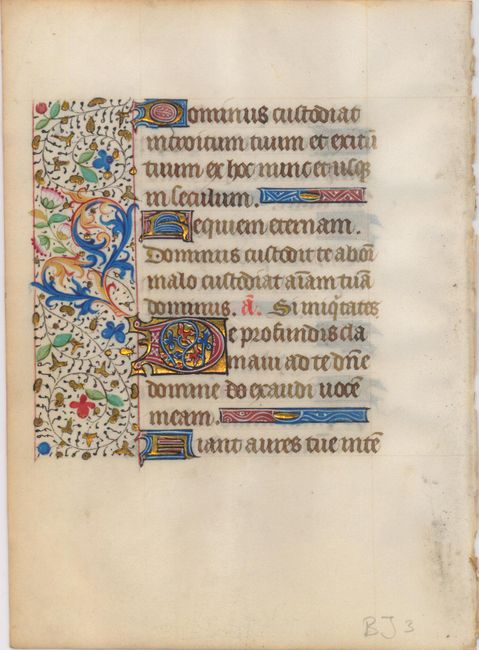 Dominus custodiat
introitum tuum et exitū
tuum ex hoc nunc et usq
in seculum.
Requiem eternam.
Dominus custodit te ab oī
malo custodiat aīam tuā
dominus. ā. Si iniq̄tates
De profundis cla
maui ad te dn̄e
domine do exaudi uocē
meam.
Fiant aures tue intē
BJ 3